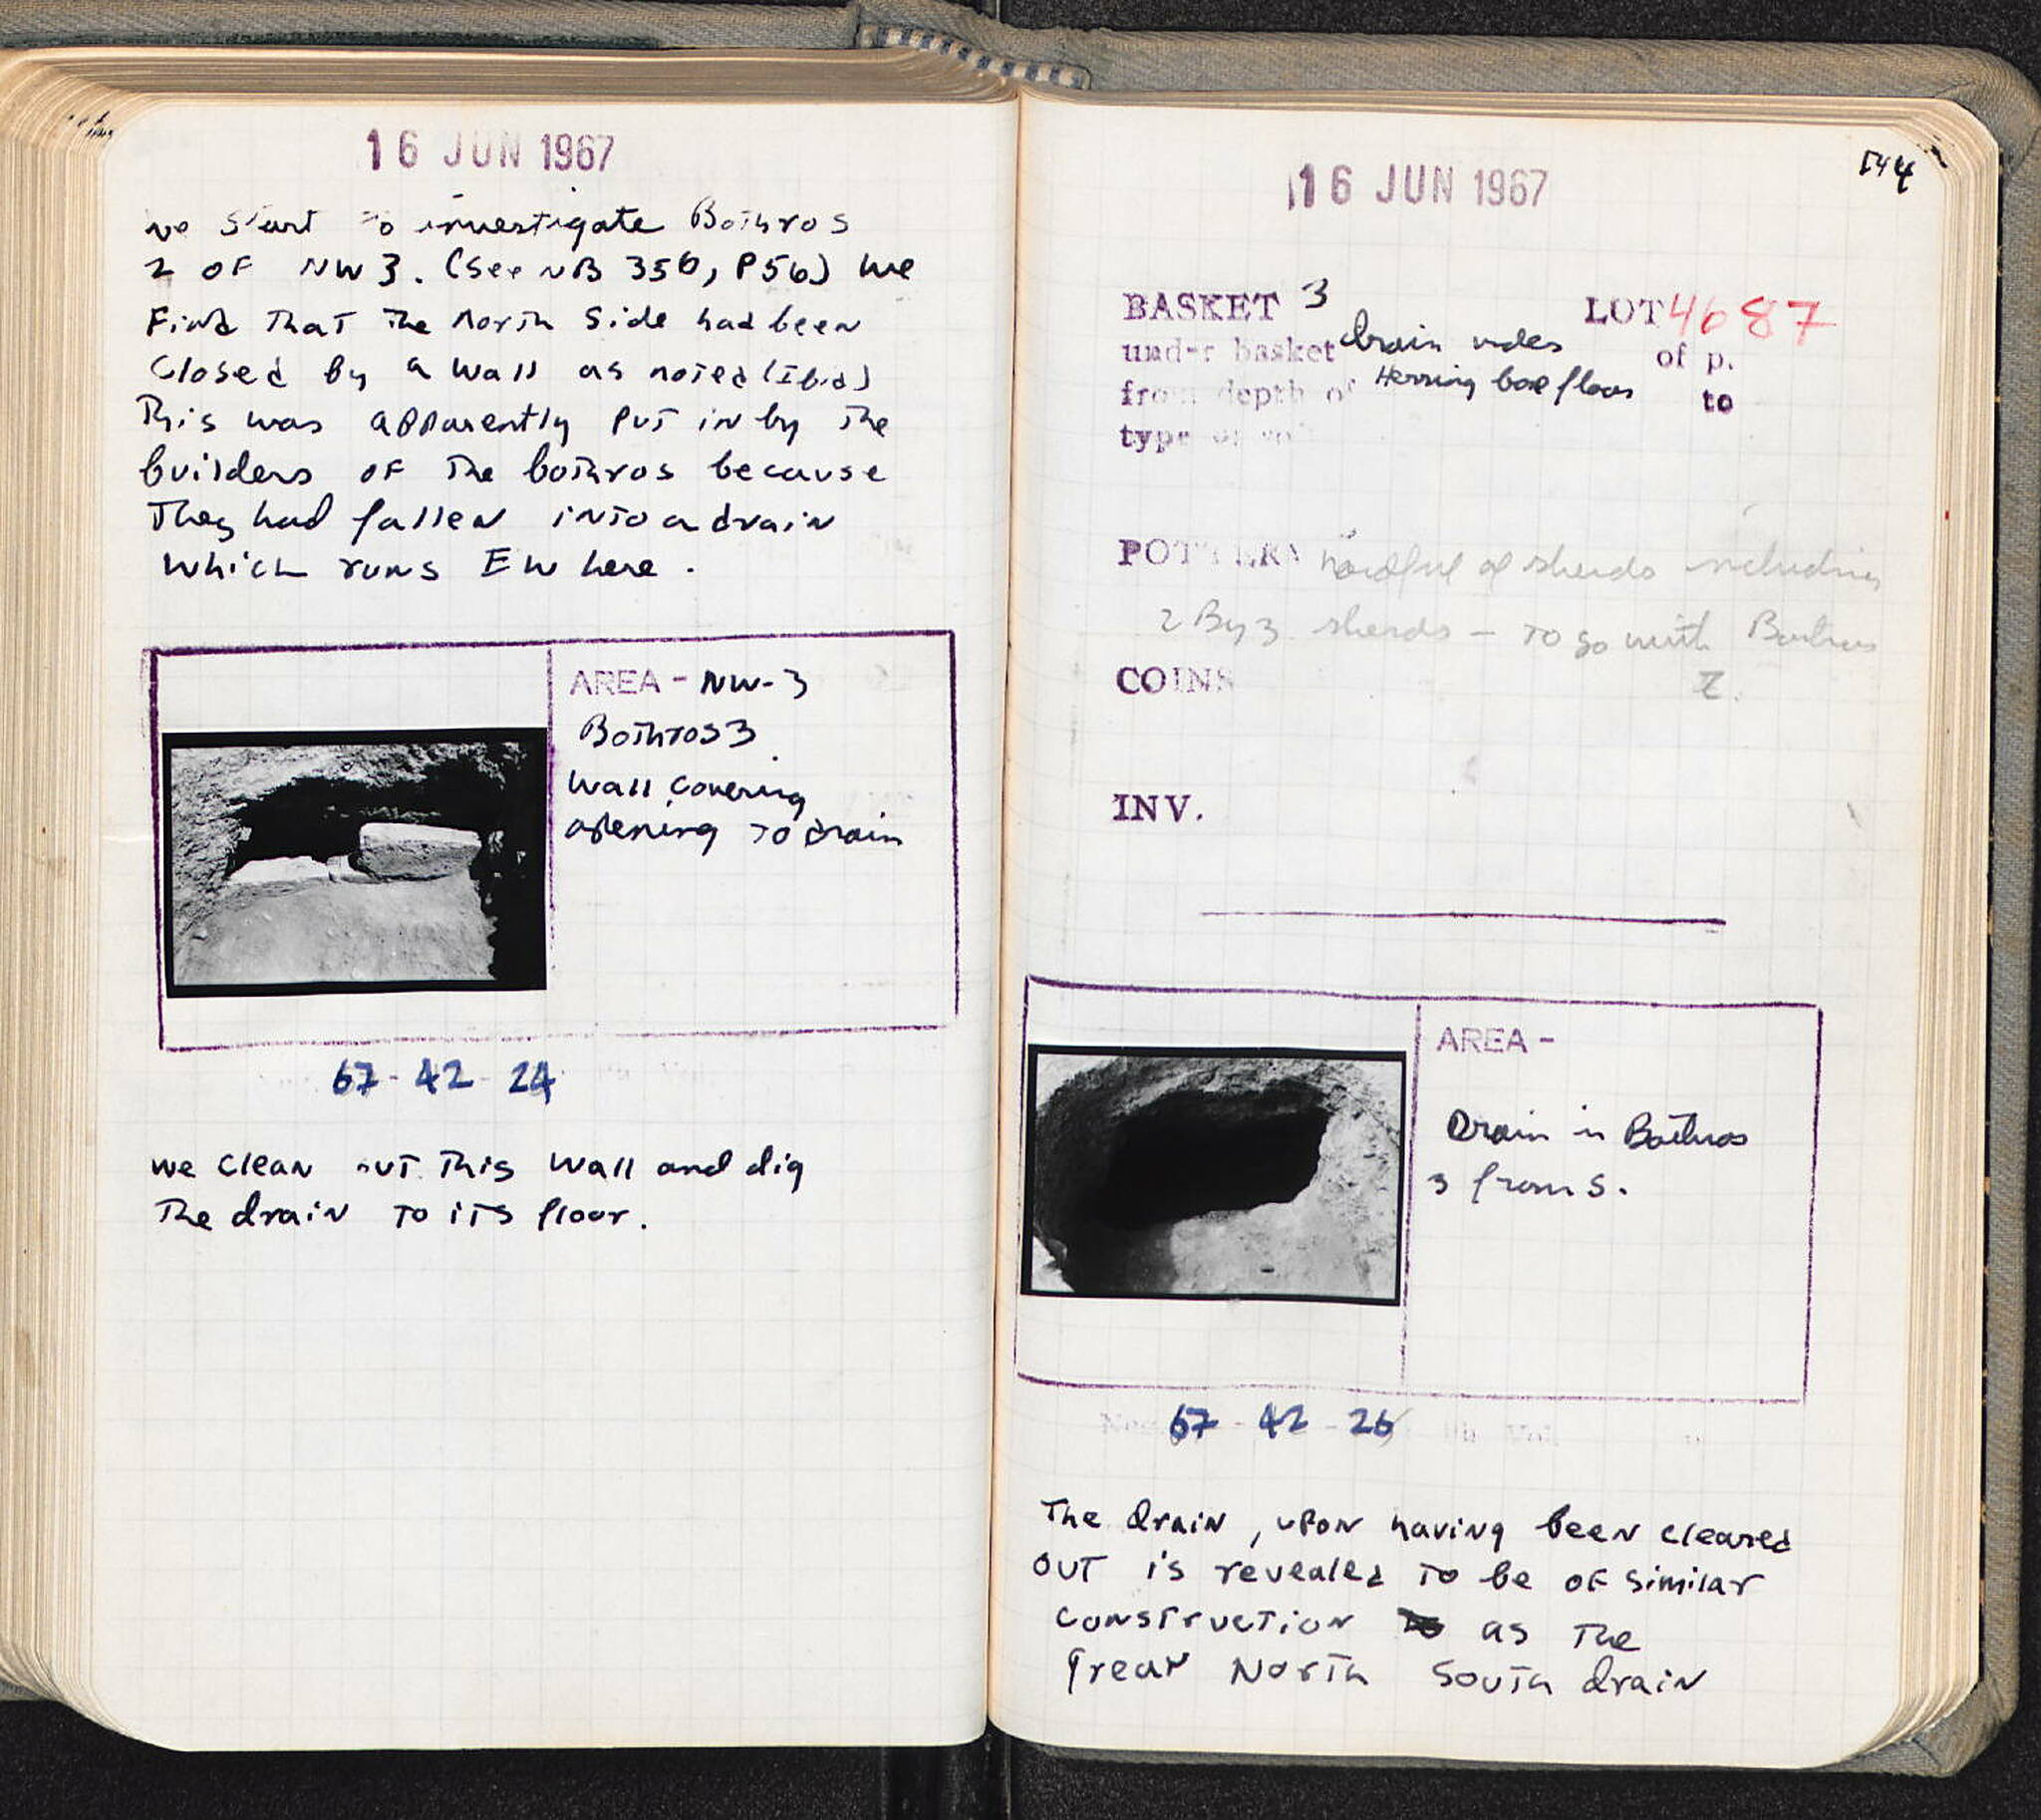 16 JUN 1967
we start to investigate Bothros
2 OF NW 3. (See NB 350, P56) we
Find That The North Side had been
Closed By a wall as noted (Ibid)
This was apparently put in by The
builders OF The bothros because
They had fallen into a drain
which runs EW here.
AREA - NW-3
Bothros 3
Wall covering
opening to drain
67-42-24
we clean out This wall and dig
The drain TO iTS floor.
16 JUN 1967
144
BASKET 3 LOT 4687
under basket drain under of p.
from depth of Herring bone floor to
type of
POTTERY handful of sherds including
2 Byz sherds - to go with Bothros
COINS 2.
INV.
AREA -
Drain in Bothros
3 from S.
Neg 67-42-26
The drain, upon having been cleared
OUT is revealed TO be OF similar
construction as The
great North South drain